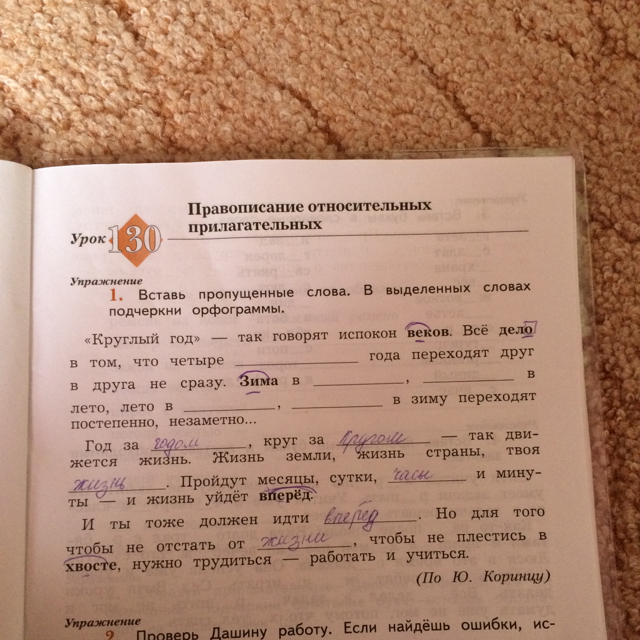 Правописание относительных
Урок 130 прилагательных
Упражнение
1. Вставь пропущенные слова. В выделенных словах
подчеркни орфограммы.
«Круглый год» — так говорят испокон веков. Всё дело
в том, что четыре ____________ года переходят друг
в друга не сразу. Зима в __________, __________ в
лето, лето в __________, __________ в зиму переходят
постепенно, незаметно...
Год за годом, круг за кругом — так дви-
жется жизнь. Жизнь земли, жизнь страны, твоя
жизнь. Пройдут месяцы, сутки, часы и мину-
ты — и жизнь уйдёт вперёд.
И ты тоже должен идти вперёд. Но для того
чтобы не отстать от жизни, чтобы не плестись в
хвосте, нужно трудиться — работать и учиться.
(По Ю. Коринцу)
Упражнение
2. Проверь Дашину работу. Если найдёшь ошибки, ис-